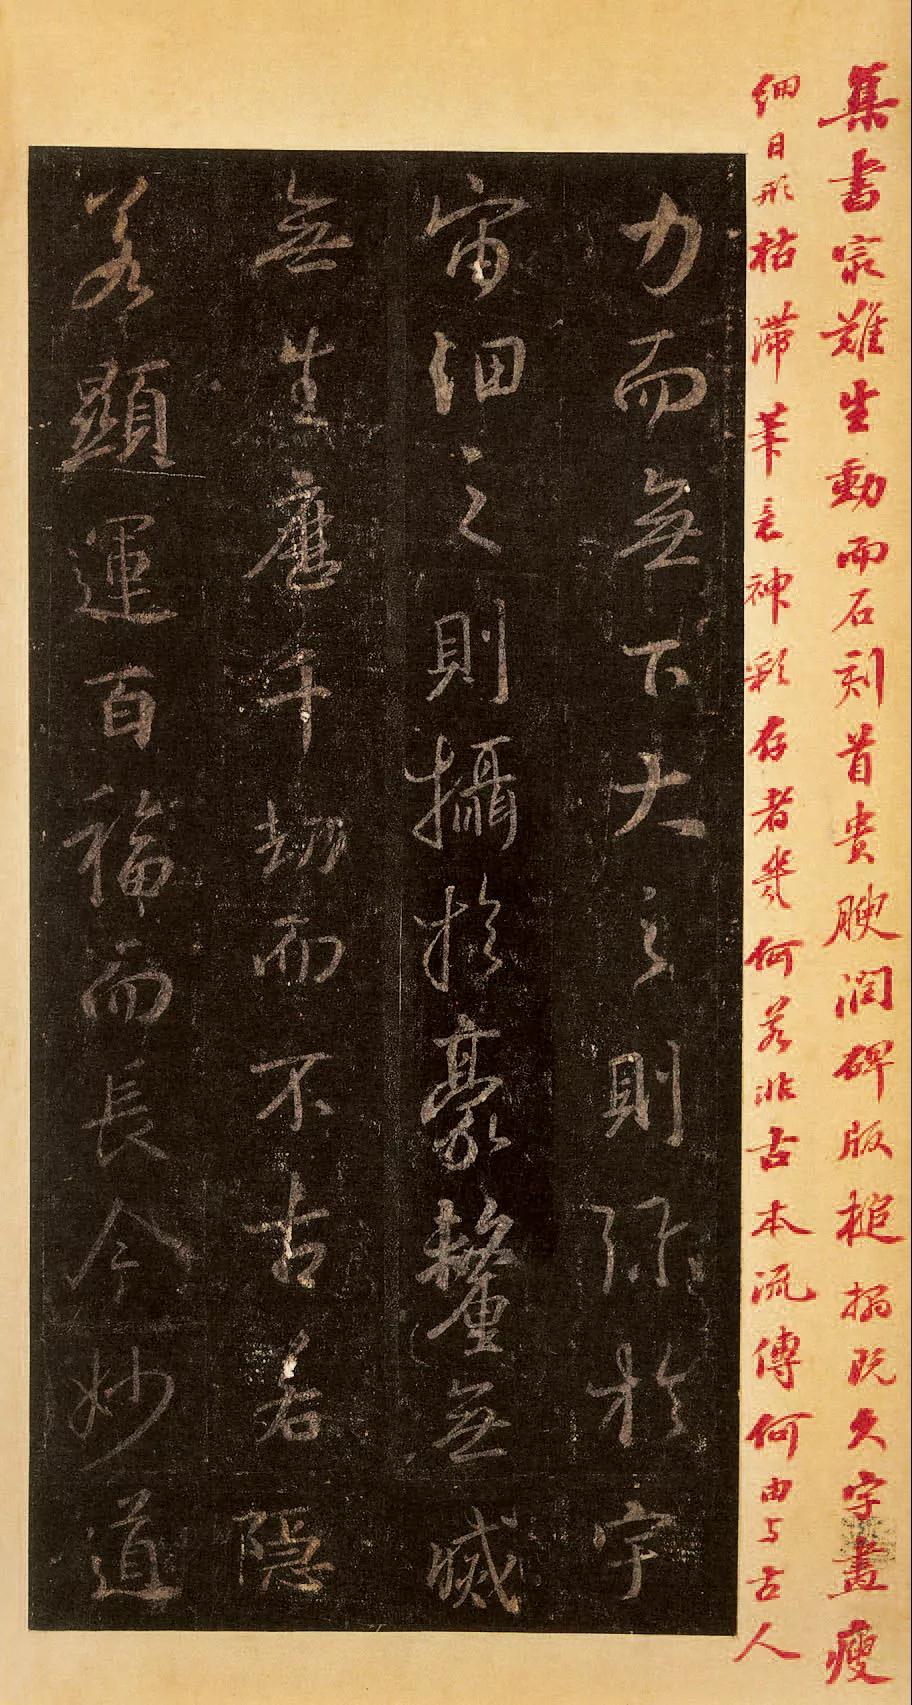 集書冣難生動而石刻首貴腴潤碑版槌搨既久字畫瘦
細日形枯滯筆意神彩存者幾何若非古本流傳何由与古人
力而無下大之則弥於宇
宙細之則攝於豪釐無滅
無生歷千劫而不古若隱
若顯運百福而長今妙道